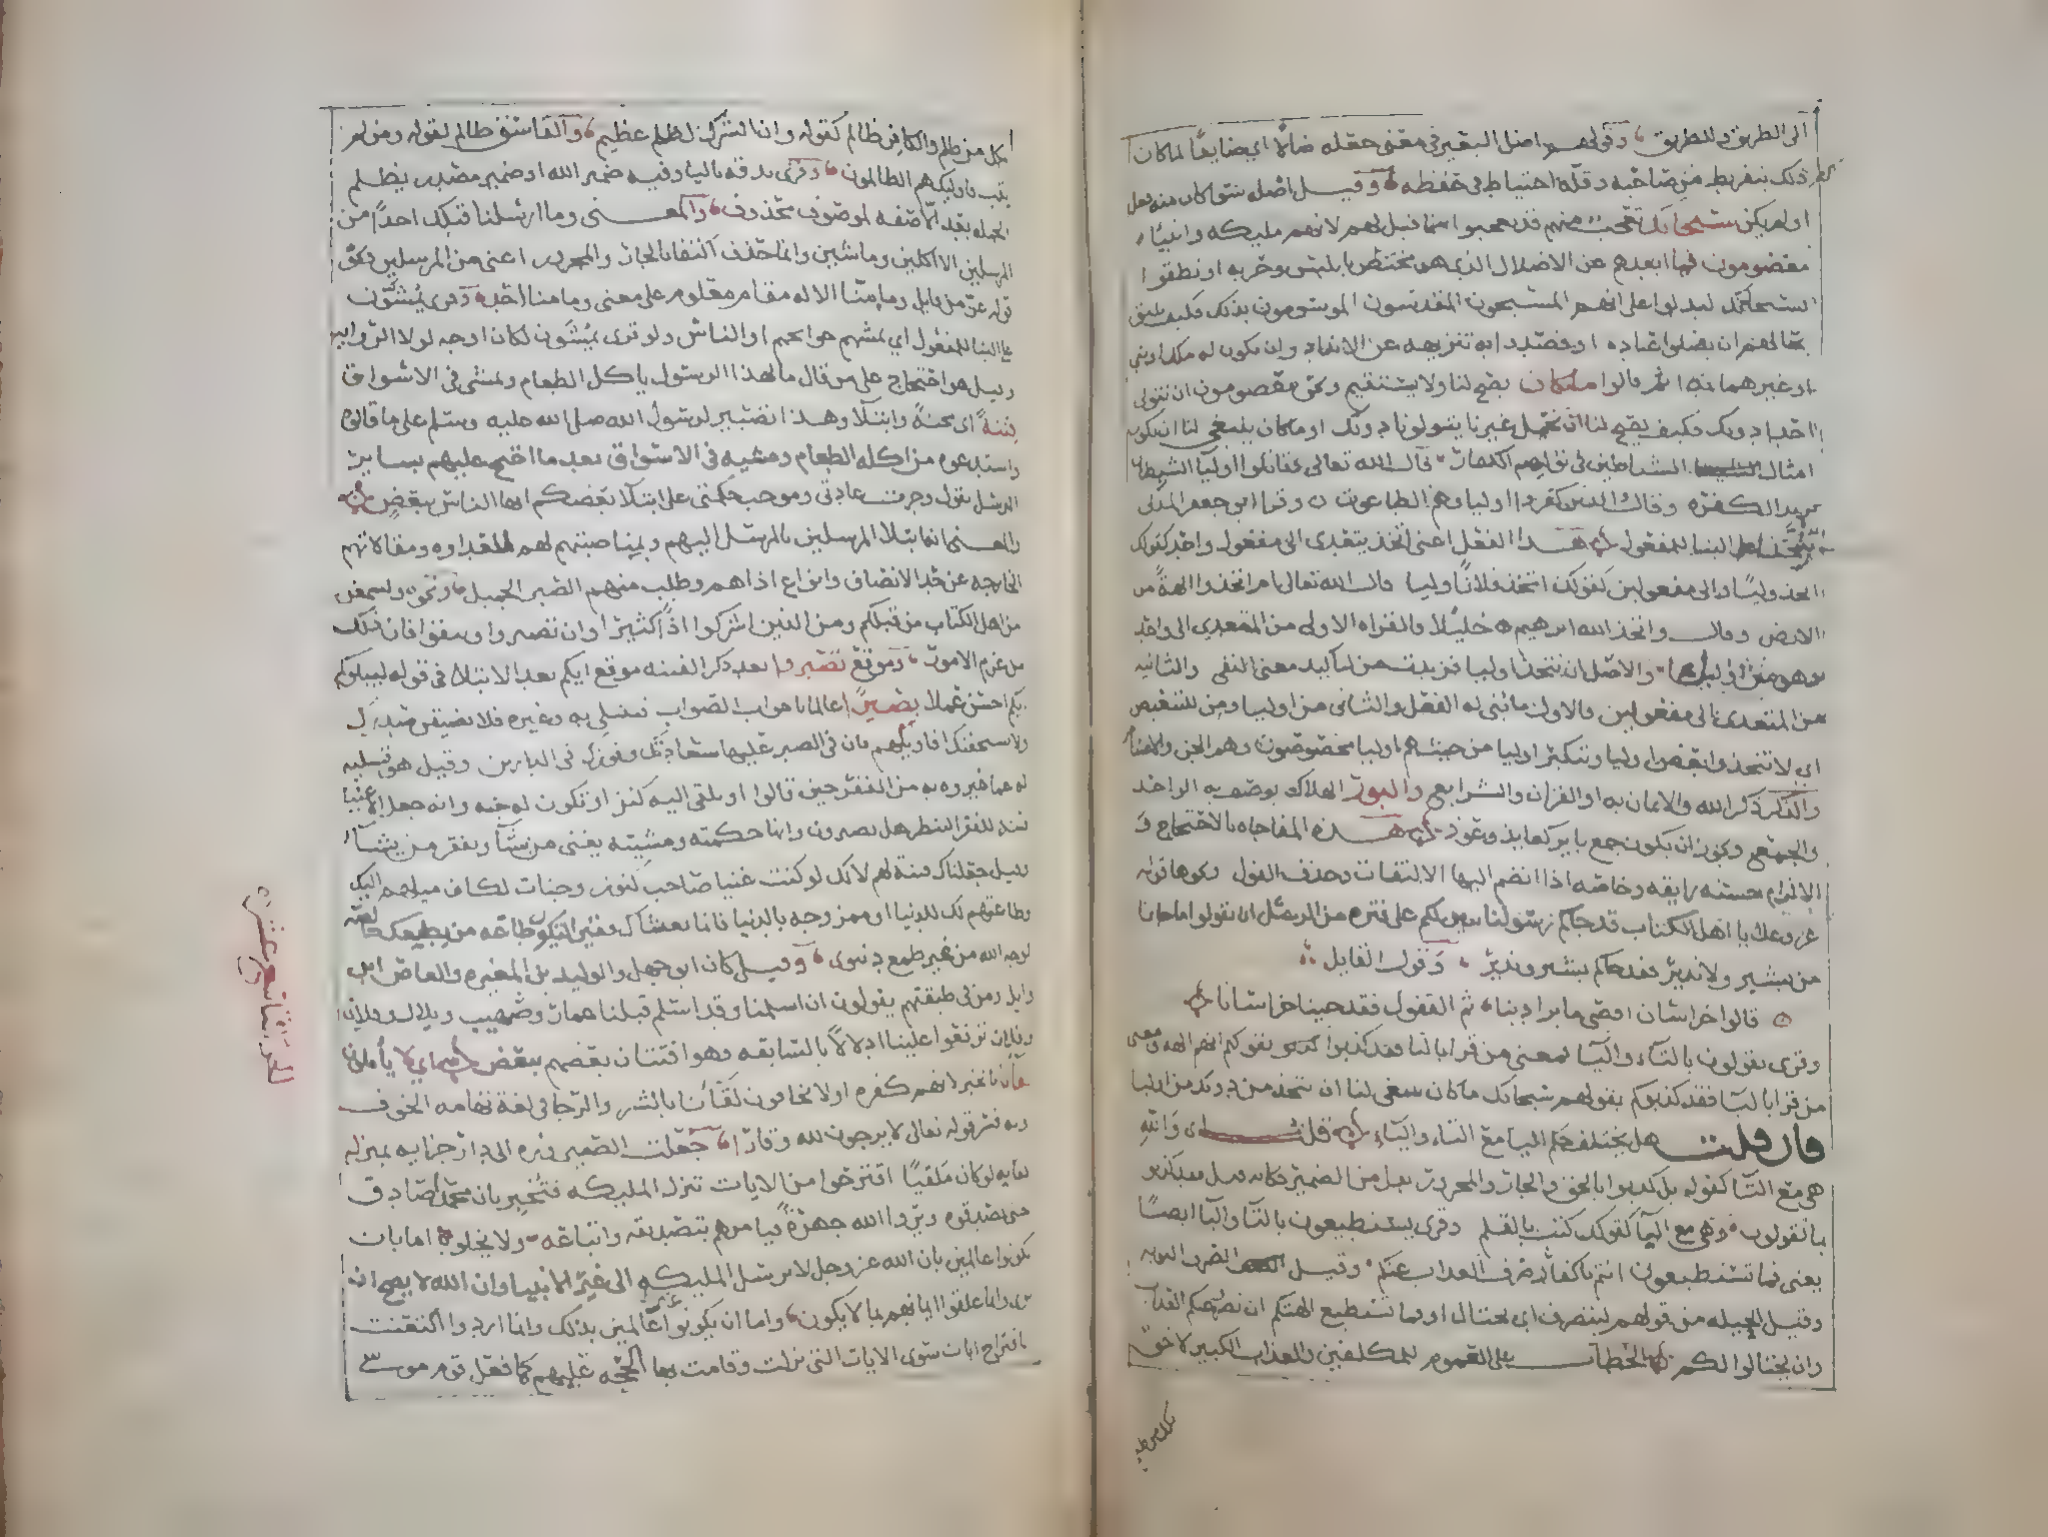 الى الطريق وللطريق وقولهم اضل البعير في معنى جعله ضالا اي ضايعا لما كان
ذلك بتفريط من صاحبه وقلة احتياط في حفظه وقيل اصله سوا كان منه فعل
او لم يكن سبحانك تعجب منهم قد تعجبوا مما قيل لهم لانهم مليكه وانبيا
معصومون فما ابعدهم عن الاضلال الذي هو مختص بابليس وحزبه او نطقوا
بسبحانك ليدلوا على انهم المسبحون المقدسون الموسومون بذلك فكيف يليق
بحالهم ان يضلوا عباده او قصدوا به تنزيهه عن الانداد وان يكون له ملك او نبي
او غيرهما ندا ثم قالوا ما كان يصح لنا ولا يستقيم ونحن معصومون ان نتولى
احدا دونك فكيف يصح لنا ان نحمل غيرنا يتولونا دونك او ما كان ينبغي لنا ان نكون
امثال الشياطين في توليهم الكفار قال الله تعالى فقاتلوا اوليا الشيطان
يريد الكفرة وقال والذين كفروا اولياوهم الطاغوت وقرا ابو جعفر المدني
نتخذ على البنا للمفعول هذا الفعل اعني اتخذ يتعدى الى مفعول واحد كقولك
اتخذ وليا والى مفعولين كقولك اتخذ فلانا وليا قال الله تعالى ام اتخذوا الهة من
الارض وقال واتخذ الله ابرهيم خليلا فالقراه الاولى من المتعدي الى واحد
وهو من اوليا والاصل ان نتخذ اوليا فزيدت من لتاكيد معنى النفي والثانيه
من المتعدي الى مفعولين فالاول ما بني له الفعل والثاني من اوليا ومن للتبعيض
اي لا نتخذ بعض اوليا وتنكير اوليا من حيث انهم اوليا مخصوصون وهم الجن والاصنام
والذكر ذكر الله والايمان به او القران والشرايع والبور الهلاك يوصف به الواحد
والجمع ويجوز ان يكون جمع باير كعايذ وعوذ هذه المفاجاه بالاحتجاج و
الالزام حسنه رايعه وخاصه اذا انضم اليها الالتفات وحذف القول ونحوها قوله
عز وعلا يا اهل الكتاب قد جاكم رسولنا يبين لكم على فترة من الرسل ان تقولوا ما جانا
من بشير ولا نذير فقد جاكم بشير ونذير وقول القايل
قالوا خراسان اقصى ما يراد بنا ثم القفول فقد جينا خراسانا
وقرى يقولون بالتاء واليا فمعنى من قرا بالتا فقد كذبوكم بقولكم انهم الهه ومعنى
من قرا باليا فقد كذبوكم بقولهم سبحانك ما كان ينبغي لنا ان نتخذ من دونك من اوليا
فان قلت هل يختلف حكم البا مع التاء والياء قلت اي والله
هي مع التا كقوله بل كذبوا بالحق والجار والمجرور بدل من الضمير كانه قيل فقد كذبوا
بما تقولون وهي مع اليا كقولك كتبت بالقلم وقرى يستطيعون بالتا واليا ايضا
يعني فما تستطيعون انتم يا كفار صرف العذاب عنكم وقيل الصرف التوبه
وقيل الحيله من قولهم ليتصرف اي يحتال او فما تستطيع الهتكم ان تصرف عنكم العذاب
وان يحتالوا لكم الخطاب على العموم للمكلفين والعذاب الكبير لاحق
بكل من ظلم والكافر ظالم كقوله وان الشرك لظلم عظيم والفاسق ظالم لقوله ومن لم
يتب فاوليك هم الظالمون وقرى يذقه باليا وفيه ضمير الله او ضمير مصدر يظلم
الجمله بعد الا صفه لموصوف محذوف والمعنى وما ارسلنا قبلك احدا من
المرسلين الا اكلين وماشين وانما حذف اكتفا بالجار والمجرور اعني من المرسلين ونحوه
قوله عز من قايل وما منا الا له مقام معلوم على معنى وما منا احد وقرى يمشون
على البنا للمفعول اي تمشيهم حوايجهم او الناس ولو قرى يمشون لكان اوجه لولا الروايه
وقيل هو احتجاج على من قال ما لهذا الرسول ياكل الطعام ويمشي في الاسواق
فتنة اي محنة وابتلا وهذا تصبير لرسول الله صلى الله عليه وسلم على ما قالوه
واستبدعوه من اكله الطعام ومشيه في الاسواق بعد ما احتج عليهم بساير
الرسل يقول وجرت عادتي وموجب حكمتي على ابتلا بعضكم ايها الناس ببعض
والمعنى انه ابتلا المرسلين بالمرسل اليهم وبمناصبتهم لهم العداوه ومقالاتهم
الخارجه عن حد الانصاف وانواع اذاهم وطلب منهم الصبر الجميل ونحوه ولتسمعن
من اهل الكتاب من قبلكم ومن الذين اشركوا اذا كثيرا وان تصبروا وتتقوا فان ذلك
من عزم الامور وموقع تصبرون بعد ذكر الفتنه موقع ايكم بعد الابتلا في قوله ليبلوكم
ايكم احسن عملا بصيرا عالما بالصواب فيما يبتلي به وغيره فلا يضيقن صدرك
ولا يستخفنك اقاويلهم فان في الصبر عليها سعادتك وفوزك في الدارين وقيل هو تسليه
له عما عيروه به من الفقر حين قالوا او يلقى اليه كنز او تكون له جنه وانه جعل الاغنيا
فتنه للفقرا لينظر هل يصبرون وانها حكمته ومشيته يغني من يشا ويفقر من يشا
وقيل جعلناك فتنة لهم لانك لو كنت غنيا صاحب كنوز وجنات لكان ميلهم اليك
وطاعتهم لك للدنيا او ممزوجه بالدنيا فانما بعثناك فقيرا لتكون طاعة من يطيعك خالصه
لوجه الله من غير طمع دنيوي وقيل كان ابو جهل والوليد بن المغيره والعاص ابن
وايل ومن في طبقتهم يقولون ان اسلمنا وقد اسلم قبلنا عمار وصهيب وبلال وفلان
وفلان ترفعوا علينا ادلالا بالسابقه فهو افتتان بعضهم ببعض اي لا يأملون
لقانا بالخير لانهم كفره او لا يخافون لقأنا بالشر والرجا في لغة تهامه الخوف
وبه فسر قوله تعالى لا يرجون لله وقارا جعلت الصيرورة الى دار جزايه بمنزله
لقايه لو كان ملقيا اقترحوا من الايات تنزل المليكه فتخبر بان محمدا صادق
حتى يصدقوه ويروا الله جهرة فيامرهم بتصديقه واتباعه ولا يخلو اما بان
يكونوا عالمين بان الله عز وجل لا يرسل المليكه الى غير الانبيا وان الله لا يصح ان
يرى وانما علقوا ايمانهم بما لا يكون واما ان يكونوا غير عالمين بذلك وانما ارادوا التعنت
باقتراح ايات سوى الايات التي نزلت وقامت بها الحجه عليهم كما فعل قوم موسى